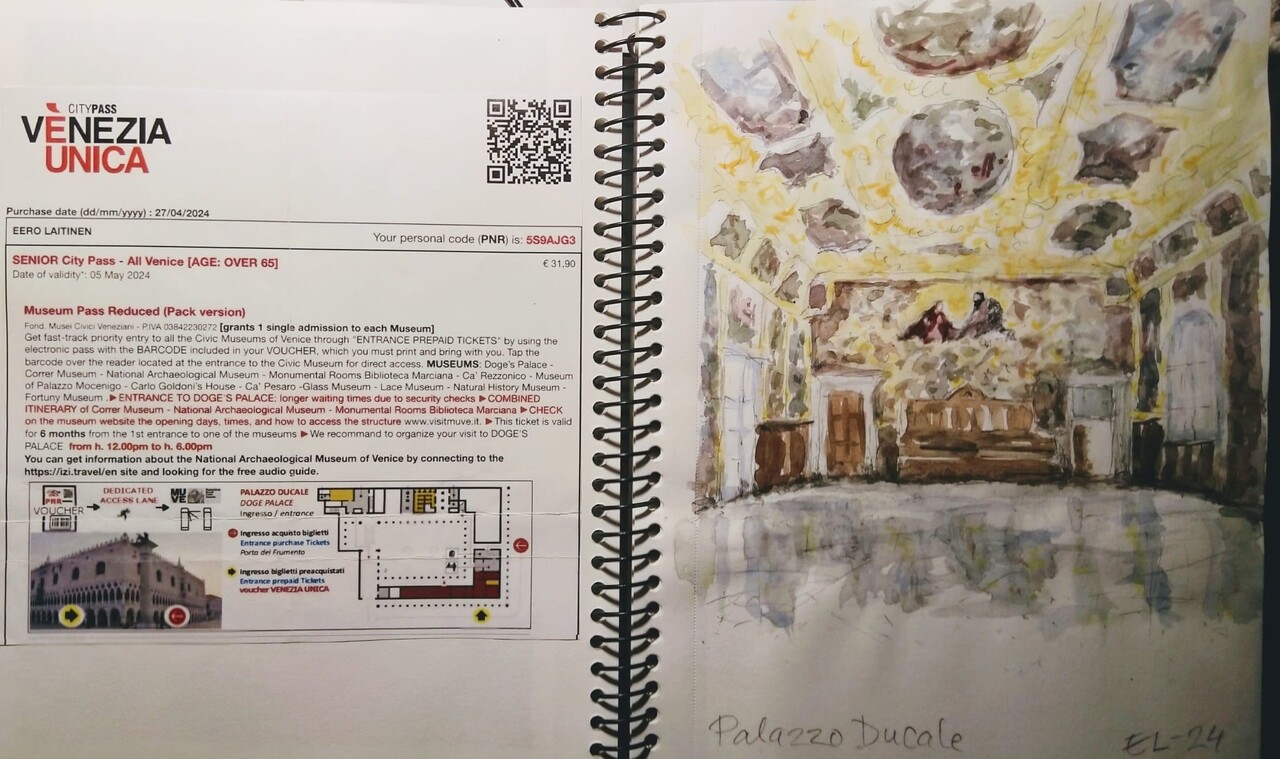 CITYPASS
VÈNEZIA
UNICA
Purchase date (dd/mm/yyyy) : 27/04/2024
EERO LAITINEN
Your personal code (PNR) is: 5S9AJG3
SENIOR City Pass - All Venice [AGE: OVER 65]
€ 31,90
Date of validity*: 05 May 2024
Museum Pass Reduced (Pack version)
Fond. Musei Civici Veneziani - P.IVA 03842230272 [grants 1 single admission to each Museum]
Get fast-track priority entry to all the Civic Museums of Venice through "ENTRANCE PREPAID TICKETS" by using the
electronic pass with the BARCODE included in your VOUCHER, which you must print and bring with you. Tap the
barcode over the reader located at the entrance to the Civic Museum for direct access. MUSEUMS: Doge's Palace -
Correr Museum - National Archaeological Museum - Monumental Rooms Biblioteca Marciana - Ca' Rezzonico - Museum
of Palazzo Mocenigo - Carlo Goldoni's House - Ca' Pesaro -Glass Museum - Lace Museum - Natural History Museum -
Fortuny Museum .►ENTRANCE TO DOGE'S PALACE: longer waiting times due to security checks ►COMBINED
ITINERARY of Correr Museum - National Archaeological Museum - Monumental Rooms Biblioteca Marciana ►CHECK
on the museum website the opening days, times, and how to access the structure www.visitmuve.it. ►This ticket is valid
for 6 months from the 1st entrance to one of the museums ►We recommand to organize your visit to DOGE'S
PALACE from h. 12.00pm to h. 6.00pm
You can get information about the National Archaeological Museum of Venice by connecting to the
https://izi.travel/en site and looking for the free audio guide.
PNR
VOUCHER
DEDICATED
ACCESS LANE
MUVE
PALAZZO DUCALE
DOGE PALACE
Ingresso / entrance
Ingresso acquisto biglietti
Entrance purchase Tickets
Porta del Frumento
Ingresso biglietti preacquistati
Entrance prepaid Tickets
voucher VENEZIA UNICA
Palazzo Ducale
EL-24